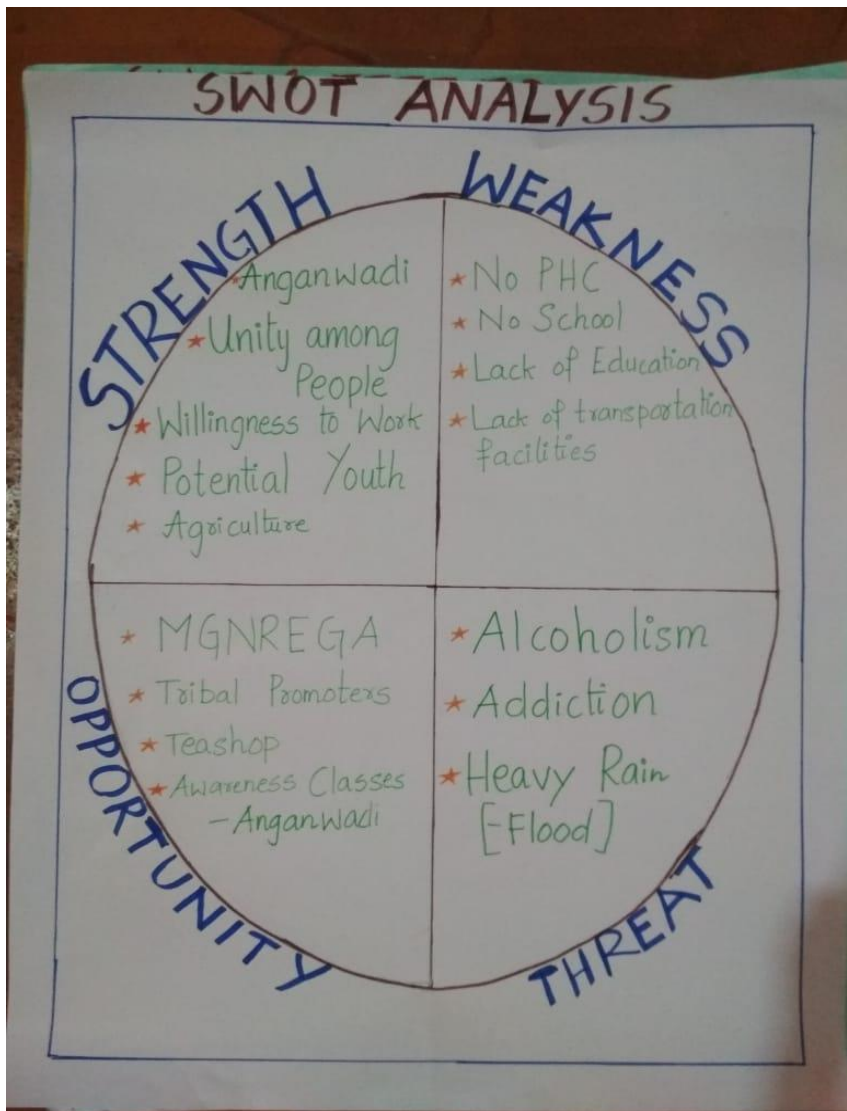 SWOT ANALYSIS
STRENGTH
★ Anganwadi
★ Unity among
People
★ Willingness to Work
★ Potential Youth
★ Agriculture
WEAKNESS
★ No PHC
★ No School
★ Lack of Education
★ Lack of transportation
facilities
OPPORTUNITY
★ MGNREGA
★ Tribal Promoters
★ Teashop
★ Awareness Classes
- Anganwadi
THREAT
★ Alcoholism
★ Addiction
★ Heavy Rain
[-Flood]